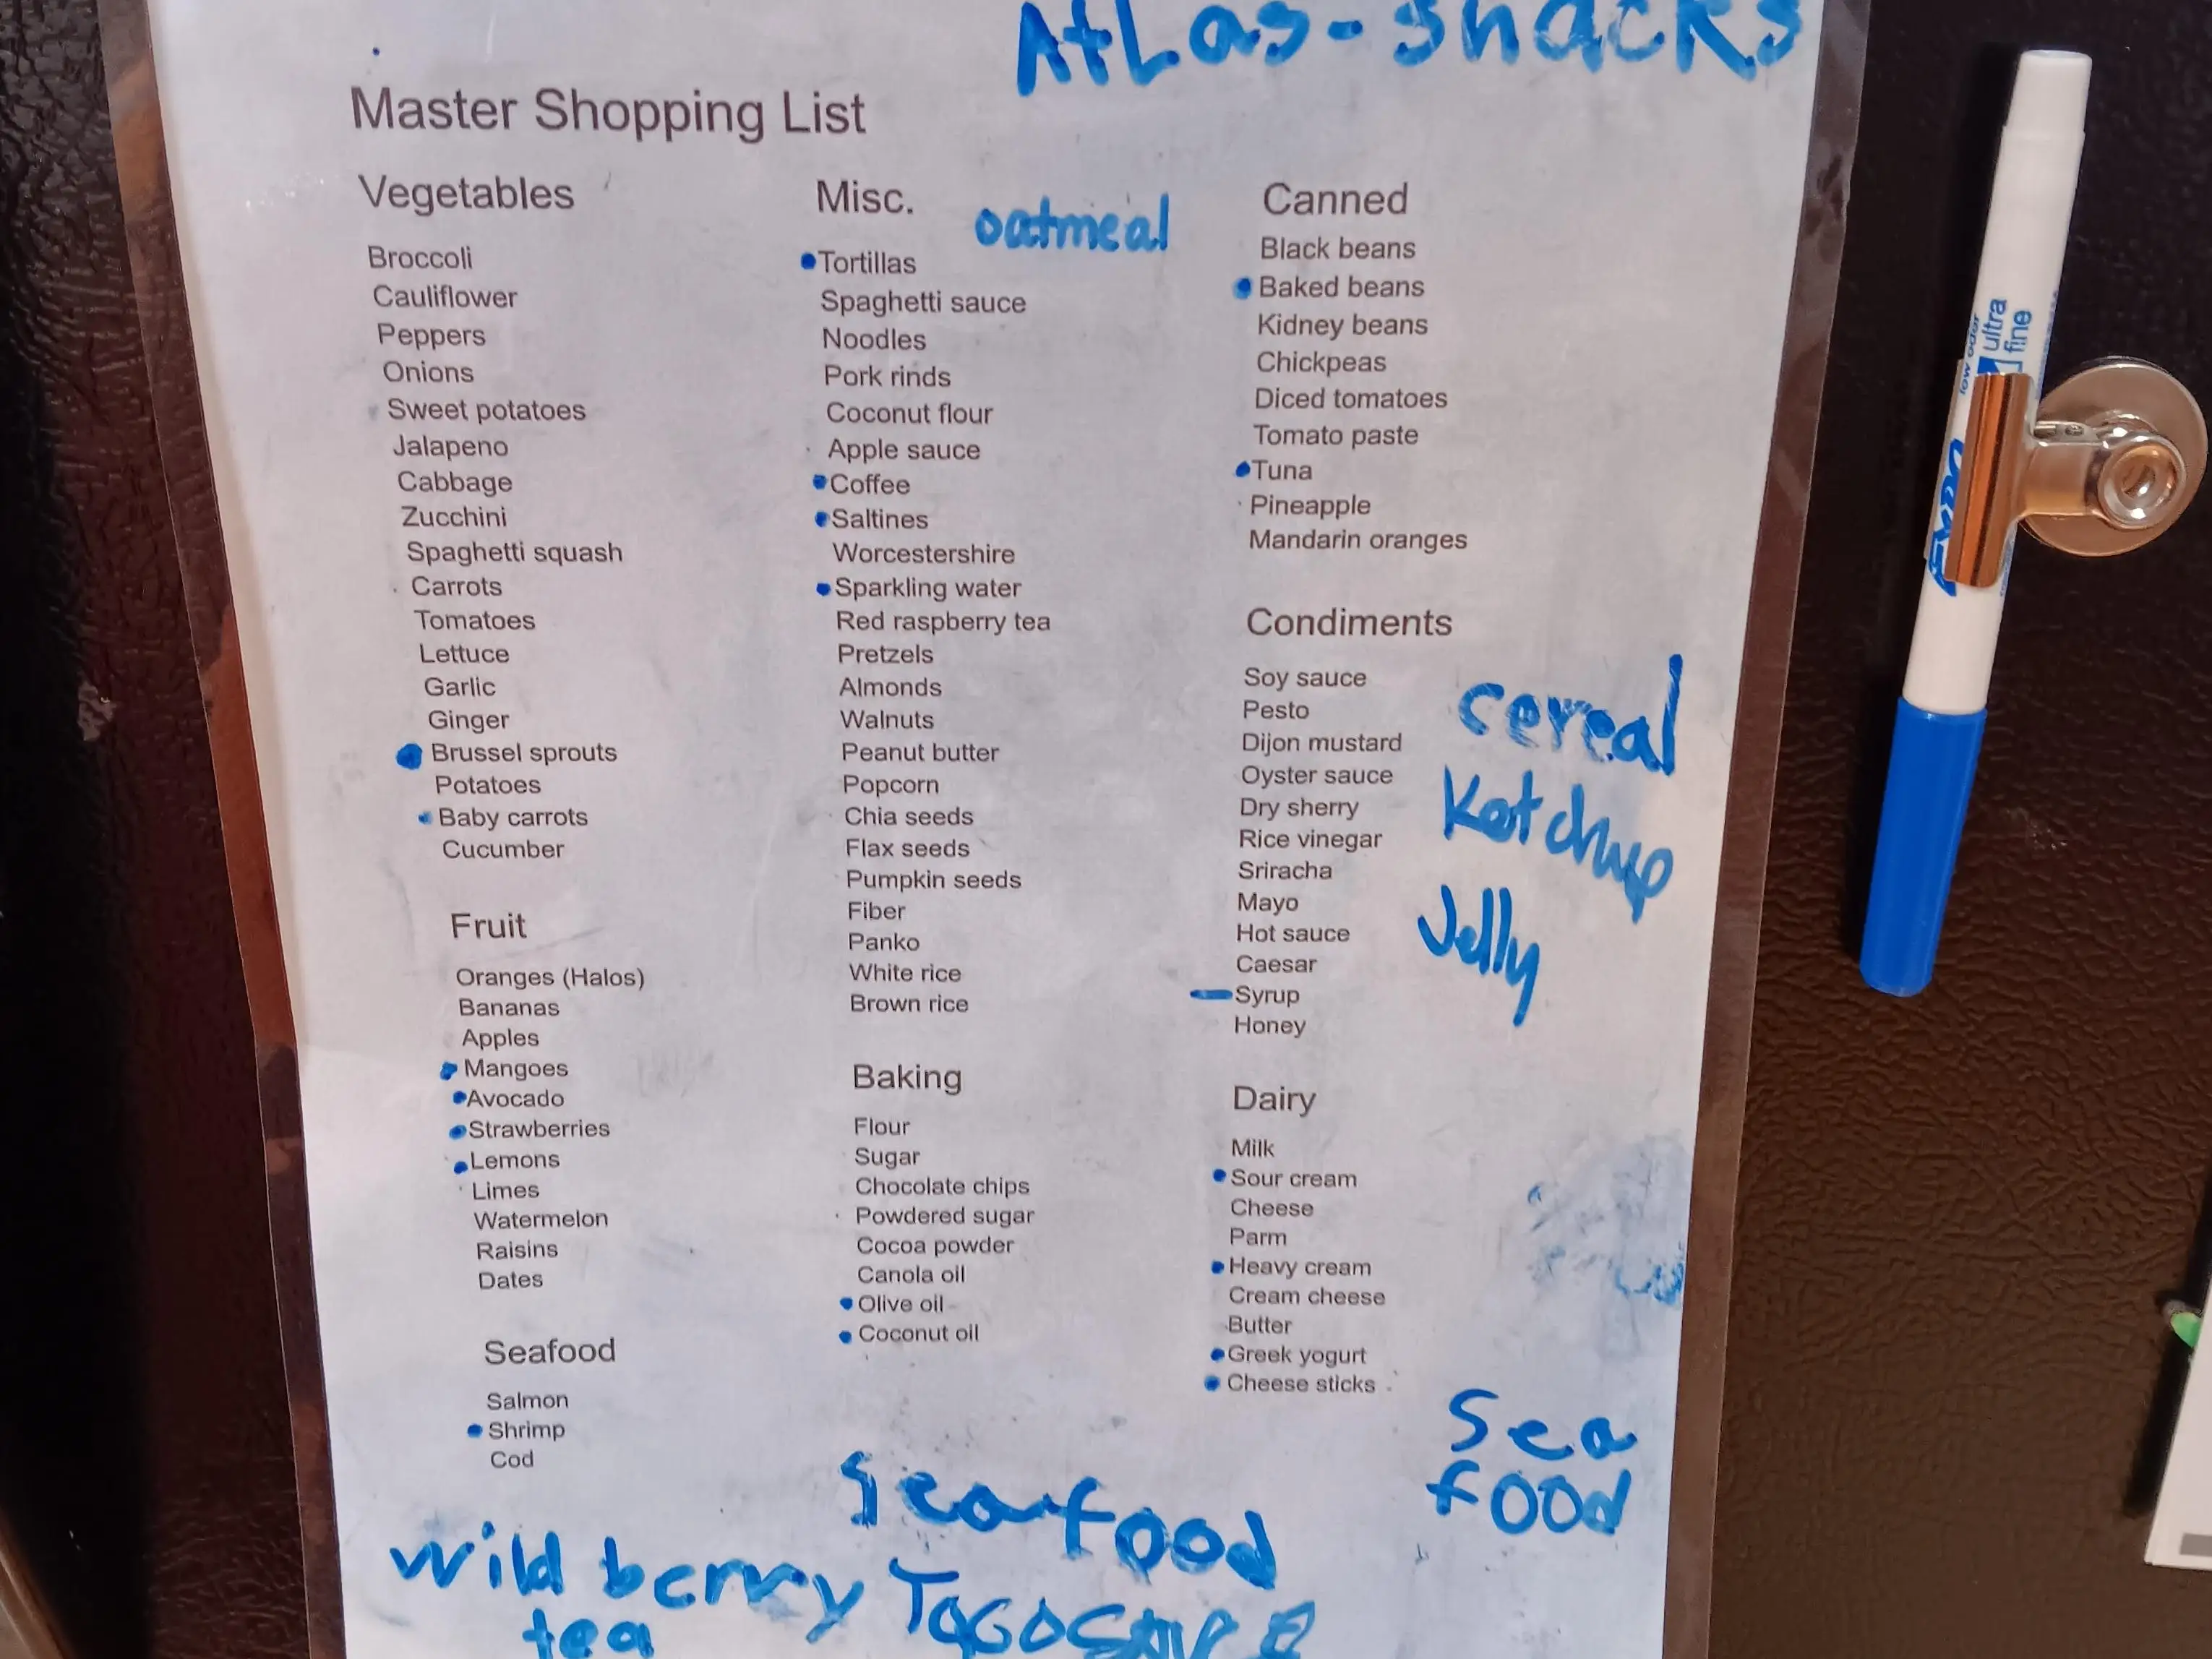 AtLas-snacks
Master Shopping List
Vegetables
Broccoli
Cauliflower
Peppers
Onions
Sweet potatoes
Jalapeno
Cabbage
Zucchini
Spaghetti squash
Carrots
Tomatoes
Lettuce
Garlic
Ginger
Brussel sprouts
Potatoes
Baby carrots
Cucumber
Fruit
Oranges (Halos)
Bananas
Apples
Mangoes
Avocado
Strawberries
Lemons
Limes
Watermelon
Raisins
Dates
Seafood
Salmon
Shrimp
Cod
Misc.
oatmeal
Tortillas
Spaghetti sauce
Noodles
Pork rinds
Coconut flour
Apple sauce
Coffee
Saltines
Worcestershire
Sparkling water
Red raspberry tea
Pretzels
Almonds
Walnuts
Peanut butter
Popcorn
Chia seeds
Flax seeds
Pumpkin seeds
Fiber
Panko
White rice
Brown rice
Baking
Flour
Sugar
Chocolate chips
Powdered sugar
Cocoa powder
Canola oil
Olive oil
Coconut oil
Canned
Black beans
Baked beans
Kidney beans
Chickpeas
Diced tomatoes
Tomato paste
Tuna
Pineapple
Mandarin oranges
Condiments
Soy sauce
Pesto
Dijon mustard
Oyster sauce
Dry sherry
Rice vinegar
Sriracha
Mayo
Hot sauce
Caesar
Syrup
Honey
cereal
Ketchup
Jelly
Dairy
Milk
Sour cream
Cheese
Parm
Heavy cream
Cream cheese
Butter
Greek yogurt
Cheese sticks
Sea
food
Seafood
wild berry
tea
low odor
ultra
fine